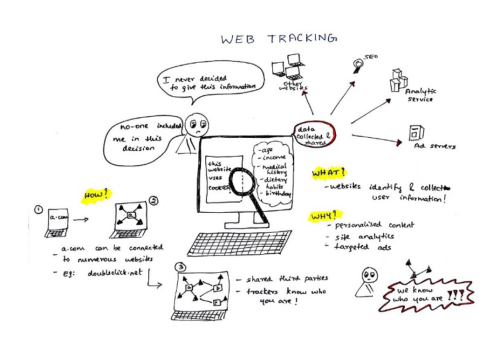 WEB TRACKING
I never decided
to give this information
no-one included
me in this
decision
Other
websites
SEO
Analytic
service
Ad servers
data
collected &
shared
this
website
uses
cookies!
- age
- income
- medical
history
- dietary
habits
- birthday
WHAT?
- websites identify & collect
user information!
HOW?
1
a.com
2
- a.com can be connected
- to numerous websites
- Eg: doubleclick.net
3
- shared third parties
- trackers know who
you are!
WHY?
- personalised content
- site analytics
- targeted ads
We know
who you are ???